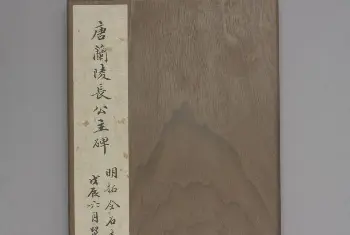 唐蘭陵長公主碑
明拓全石
戊辰六月